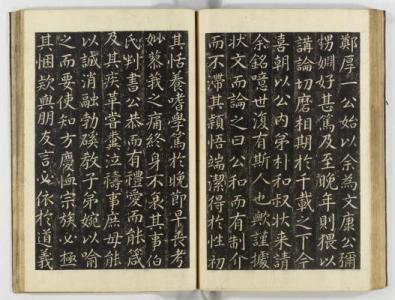 鄭厚一公始以余為文康公彌
甥嫺好甚篤及至晚年則猥以
講論切磨相期於千載之下今
喜朝以公內弟朴和叔狀來請
余銘噫世復有斯人也歟謹據
狀文而論之曰公和而有制介
而不滯其穎悟端潔得於性初
其恬養嗜學篤於晚節早喪考
妣蓼莪之痛終身不衰其事伯
氏判書公恭而有禮愛而能箴
及其疾革嘗糞泣禱事庶母能
以誠消融勃磎教子弟婉以喻
之而要使知方慶恤宗族必極
其悃款與朋友言必依於道義